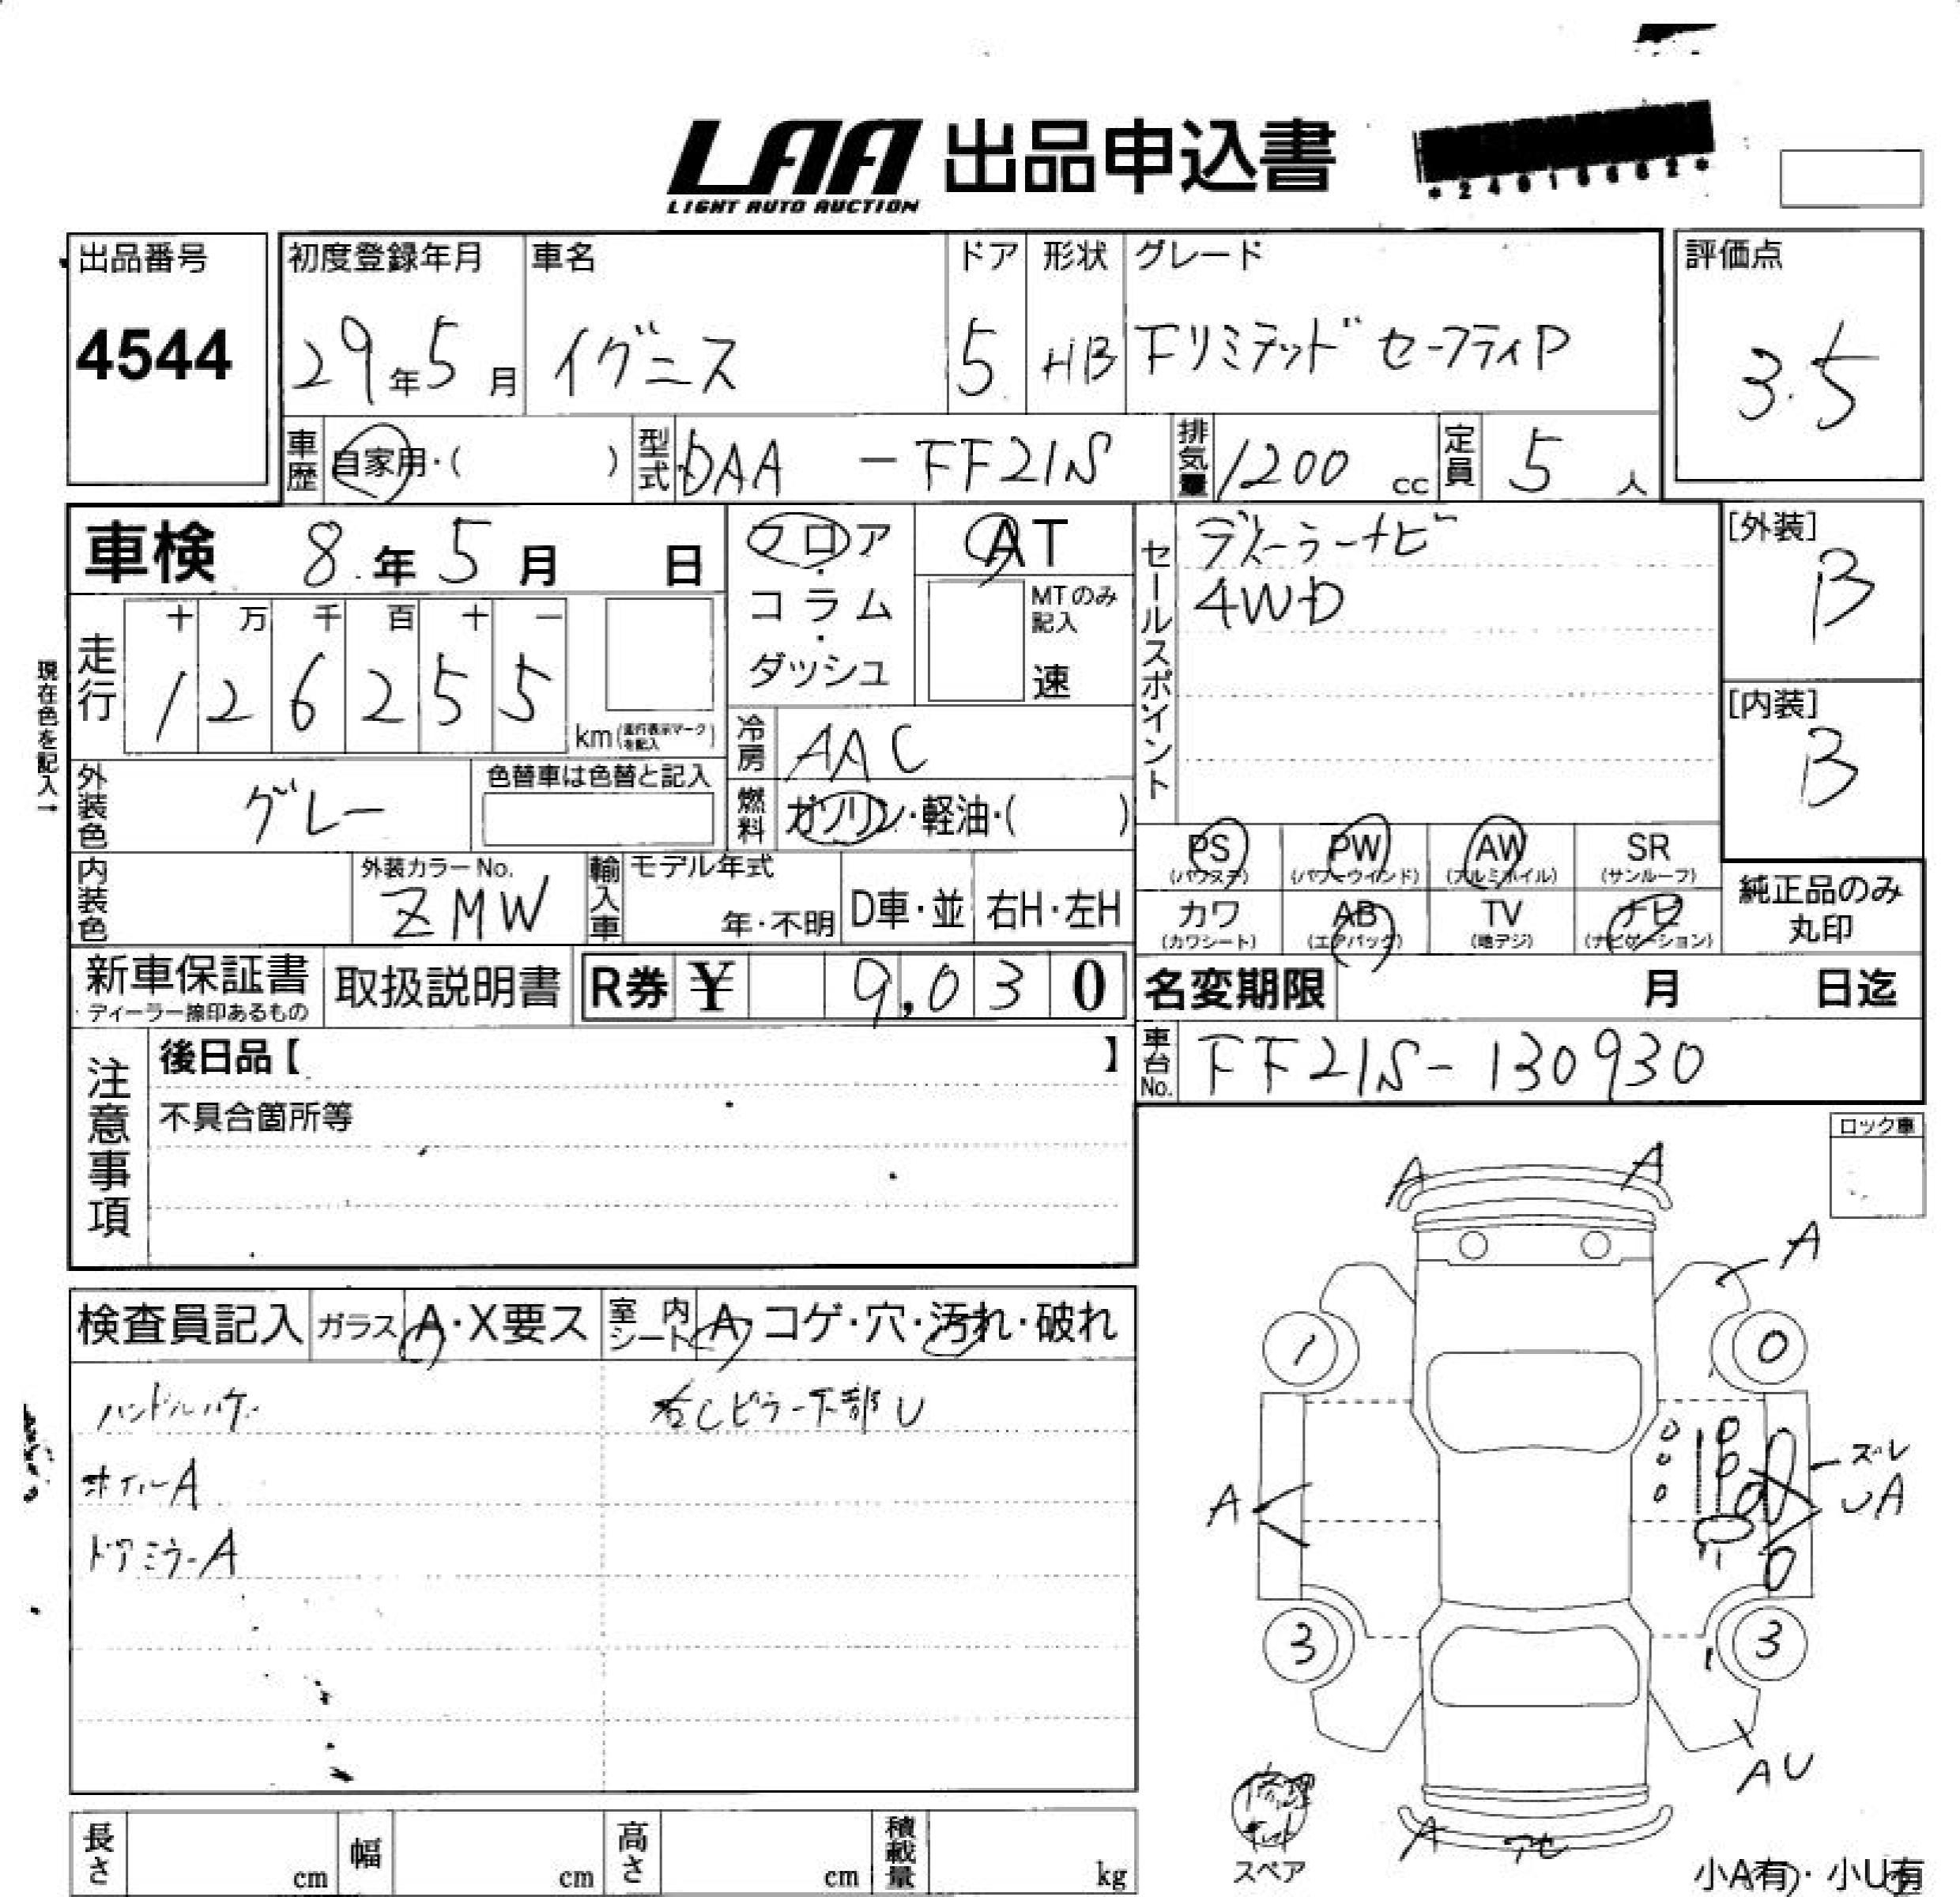 LAA 出品申込書
LIGHT AUTO AUCTION
出品番号
4544
初度登録年月 車名 ドア 形状 グレード
29年5月 イグニス 5 HB Fリミテッド セーフティP
評価点
3.5
車歴 自家用・( ) 型式 DAA - FF21S 排気量 1200 cc 定員 5 人
車検 8年5月 日
フロア・コラム・ダッシュ
AT
MTのみ記入
速
セールスポイント
ディーラーナビ
4WD
[外装]
B
[内装]
B
現在色を記入→
走行 十 万 千 百 十 一
1 2 6 2 5 5 km (走行表示マークを記入)
冷房 AAC
外装色 グレー 色替車は色替と記入
燃料 ガソリン・軽油・( )
内装色 外装カラーNo. ZMW
輸入車 モデル年式 年・不明 D車・並 右H・左H
PS (パワステ) PW (パワーウインド) AW (アルミホイル) SR (サンルーフ)
カワ (カワシート) AB (エアバッグ) TV (地デジ) ナビ (ナビゲーション)
純正品のみ丸印
新車保証書 ディーラー捺印あるもの 取扱説明書 R券 ¥ 9,030
名変期限 月 日迄
車台No. FF21S-130930
注意事項
後日品【 】
不具合箇所等
ロック車
検査員記入 ガラス A・X要ス 室内シート A・コゲ・穴・汚れ・破れ
ハンドルハゲ 右Cピラー下部U
ホイールA
ドアミラーA
A A
A
1 0
ズレ
A UA
3 3
AU
A アセ
修理キット
スペア
小A有・小U有
長さ cm 幅 cm 高さ cm 積載量 kg